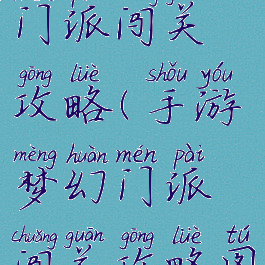 门派闯关
gōng lüè shǒu yóu
攻略(手游
mèng huàn mén pài
梦幻门派
chuǎng guān gōng lüè tú
闯关攻略图